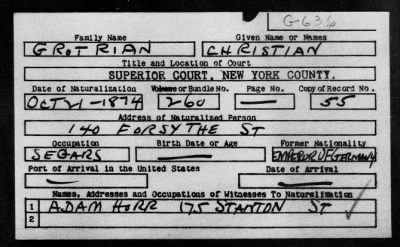 G-636
Family Name Given Name or Names
GROTRIAN CHRISTIAN
Title and Location of Court
SUPERIOR COURT, NEW YORK COUNTY.
Date of Naturalization Volume or Bundle No. Page No. Copy of Record No.
OCT 21-1874 260 — 55
Address of Naturalized Person
140 FORSYTHE ST
Occupation Birth Date or Age Former Nationality
SEGARS — EMPEROR OF GERMANY
Port of Arrival in the United States Date of Arrival
— —
Names, Addresses and Occupations of Witnesses To Naturalization
1 ADAM HORR 175 STANTON ST
2